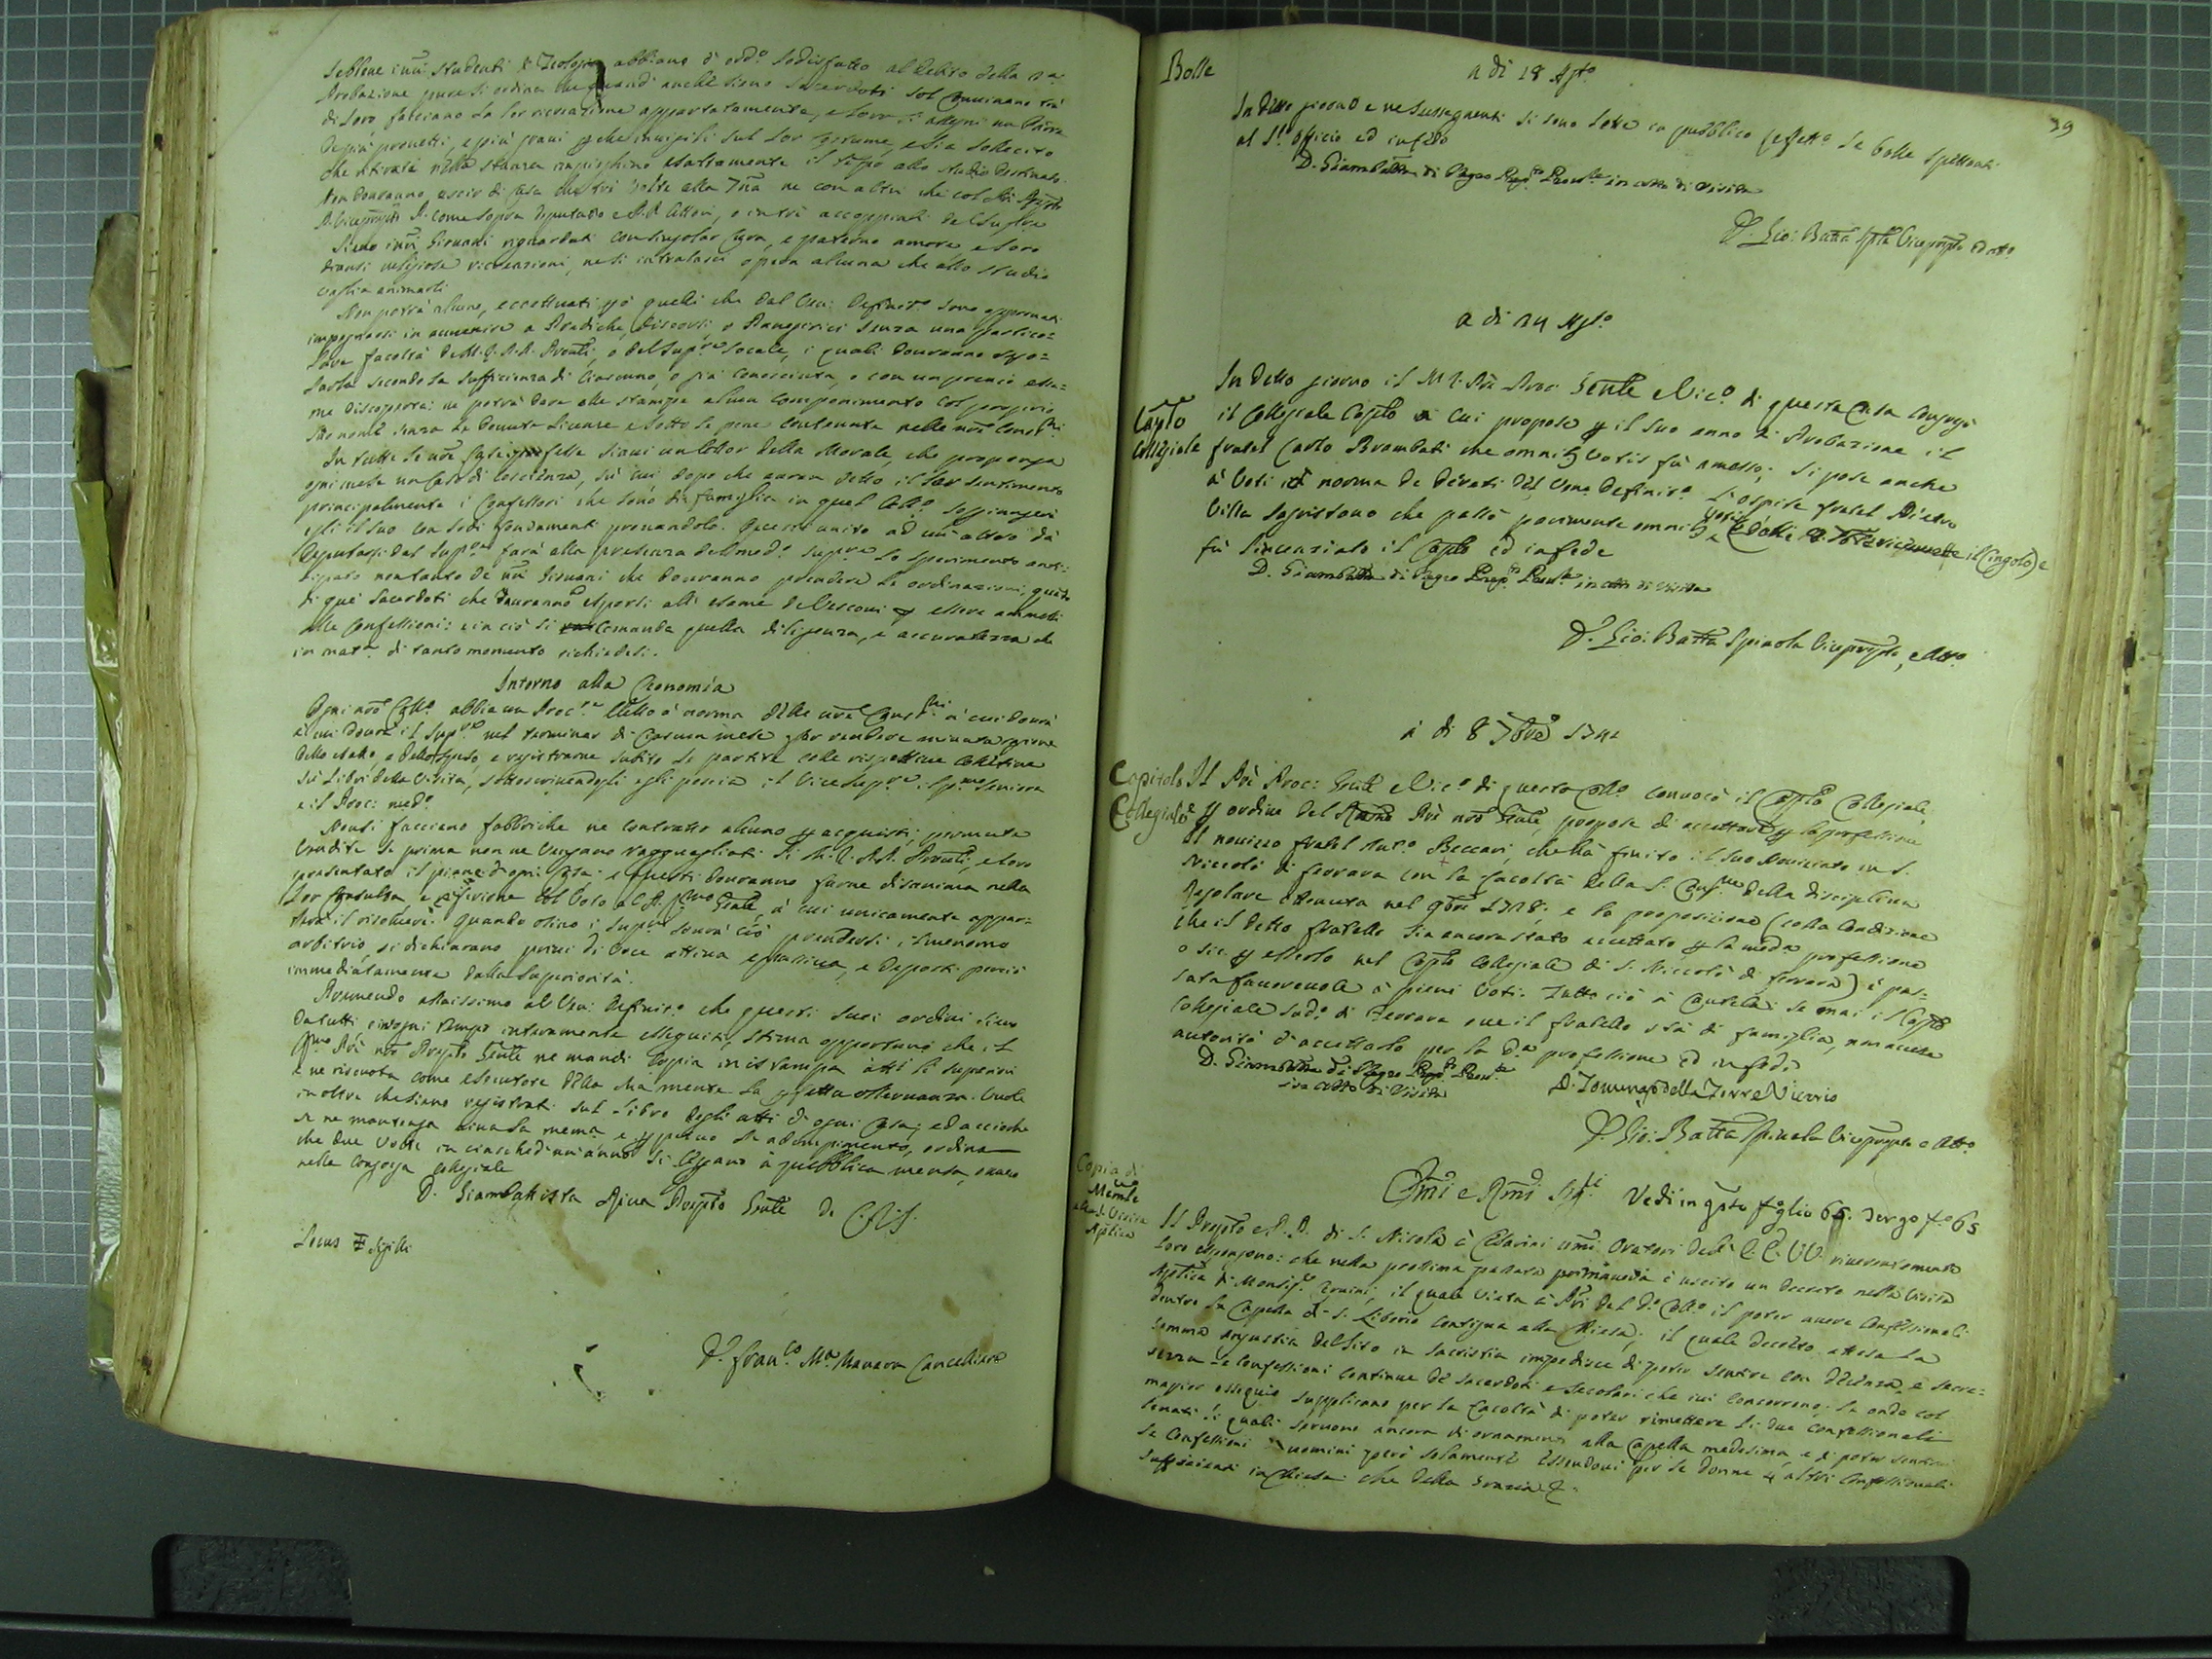 Sebbene i nri studenti di Teologia abbiano a od.o sodisfatto al debito della 2a
Probazione pure si ordina che quand' anche siano Sacerdoti sol convivano trà
di loro facciano la lor ricreazione appartatamente, e loro si assegni un Padre
de più provetti, e più gravi che invigili sul lor costume, e sia sollecito
che ritirati nella stanza impieghino esattamente il tpo allo studio destinato.
Non dovranno uscir di Casa che tre volte alla 7na ne con altri che col Pre Prpto
P. Viceprpto P. come sopra Deputato e P.P. Lettori, o intrà accoppiati del Supre
Sieno i nri Giovani riguardati con singolar cura, e paterno amore e loro
diansi religiose ricreazioni, ne si intralasci opera alcuna che allo studio
vaglia animarli
Non potrà alcuno, eccettuati però quelli che dal Ven: Definit.o sono approvati
impegnarsi in avvenire a Prediche, Discorsi, o Panegirici senza una partico=
lare facoltà de M.R.P.P. Provli, o del Sup.re locale, i quali dovranno
darla secondo la sufficienza di Ciascuno, o già conosciuta, o con un previo esa=
me discoperta: ne potrà dare alle stampe alcun componimento col proprio
suo nome senza le dovute licenze e sotto le pene contenute nelle nre Const.ni
In tutte le nre Case siavi un Lettor della Morale, che proponga
ogni mese un Caso di coscienza, sù cui dopo che avran detto il lor sentimento
principalmente i Confessori che sono di famiglia in quel Coll.o soggiungerà
egli il suo con sodi fondamenti provandolo. Questi unito ad un' altro da
Deputarsi dal Sup.re farà alla presenza del med.o Supre lo sperimento anti=
cipato non tanto de nri Giovani che dovranno prendere le ordinazioni, quanto
di que' Sacerdoti che dovranno esporsi all' esame de Vescovi essere ammessi
alle Confessioni: e in ciò si Comanda quella diligenza, e accuratezza che
in mat.a di tanto momento richiedesi.
Intorno alla Economia
Ogni nro Coll.o abbia un Proc.re Eletto à norma delle nre Const.ni à cui dovrà
il Sup.re nel terminar di Ciascun mese far rendere minuta ragione
dello esatto, e dello speso, e registrarne subito le partite colle rispettive
sù Libri della Visita, sottoscrivendogli egli poscia il Vice Sup.re
e il Proc: med.o
Non si facciano fabbriche ne contratto alcuno acquisti, permute
vendite se prima non ne vengano ragguagliati li M.R.P.P. Provli, e loro
presentato il piano d'ogni cosa: e questi dovranno farne disamina nella
lor Consulta, e riferirne col Voto al P. Rmo Gnale, à cui unicamente appar=
terrà il risolvere. Quando osino i Supri sovra ciò prendersi
arbitrio, si dichiarano privi di Voce attiva e passiva, e deposti perciò
immediatamente dalla Superiorità.
Premendo assaissimo al Ven: Definit.o che questi suoi ordini sieno
da tutti, e in ogni tempo interamente esseguiti, stima opportuno che il
Rmo Pre nro Prpto Gnale ne mandi copia in istampa à tutti li superiori
e ne riscuota come esecutore della sua mente la perfetta osservanza. Vuole
inoltre che siano registrati sul Libro degli atti di ogni Casa; ed accioche
se ne mantenga viva la mema e ppetuo l'adempimento, ordina
che due volte in ciaschedun' anno si leggano à pubblica mensa, ovvero
nella Congrega Collegiale
D. Giambattista Riva Prepto Gnale de C.R.S.
Locus Sigilli
D. Fran.co Ma Manara Cancelliero
39
Bolle
a di 18 Agto
In detto giorno e ne susseguenti si sono lette in pubblico refetto le bolle spettanti
al St Officio ed in fede
D. Giambatta di Negro Prep.to Prov.le in atto di Visita
D. Gio: Batta Spla Viceprpto ed att.o
a di 24 Agto
Capto
Collegiale
In detto giorno il M.R. Pre Proc: Gnale e Vic.o di questa Casa congregò
il Collegiale Capto à cui propose il suo anno di Probazione il
fratel Carlo Brambati che omnibus votis fù amesso; si pose anche
à Voti à norma de decreti del Vene Definit.o l'ospite fratel Pietro
Villa Sagristano che passò parimente omnibus votis il Cingolo) e
fù licenziato il Capto ed in fede
D. Giambatta di Negro Prep.to Prov.le in atto di Visita
D. Gio: Batta Spinola Viceprpto, e Att.o
à di 8 7bre 1741
Capitolo
Collegiale
Il Pre Proc: Gnale e Vic.o di questo Coll.o convocò il Capto Collegiale,
e ordine del Rmo Pre nro Gnale, propose di accettare la professione
Il novizzo fratel Ant.o Beccari, che hà finito il suo Noviziato in S.
Niccolò di ferrara con la facoltà della S. Cong.ne della disciplina
Regolare ottenuta nel 9bre 1718; e la proposizione (colla Condizione
che il detto fratello sia ancora stato accettato la meda professione
o sia esserlo nel Capto Collegiale di S. Niccolò di ferrara) è pas=
sata favorevole à pieni Voti. Tutto ciò à Cautela: se mai il Capto
Collegiale sud.o di Ferrara ove il fratello stà di famiglia, non avesse
autorità d'accettarlo per la d.a professione ed in fede
D. Giambatta di Negro Prep.to Prov.le
in atto di Visita
D. Tommaso della Torre Vicario
D. Gio: Batta Spinola Viceprpto e Att.o
Copia di
Memle
alla S. Visita
Aplica
Emi e Rmi Sigri Vedi in qsto foglio 65. tergo f.o 65
Il Prepto e P.P. di S. Nicola à Cesarini umi Oratori dell' E.E. VV. riverentemente
loro espongono: che nella prossima passata primavera è uscito un decreto nella Visita
Aplica di Monsigr Cervini, il quale vieta à Pri del d.o Coll.o il poter avere Confessionali
dentro la Capella di S. Liborio contigua alla Chiesa; il quale decreto attesa la
somma angustia del sito in sacristia impedisce di poter sentire con decenza, e secre=
tezza le Confessioni continue de sacerdoti e secolari che ivi concorrono. La onde col
magior ossequio supplicano per la facoltà di poter rimettere li due confessionali
levati li quali servono ancora di ornamento alla Capella medesima, e di poter sentire
le Confessioni uomini però solamente essendovi per le donne 4 altri Confessionali
sufficienti in Chiesa: che della grazia &.